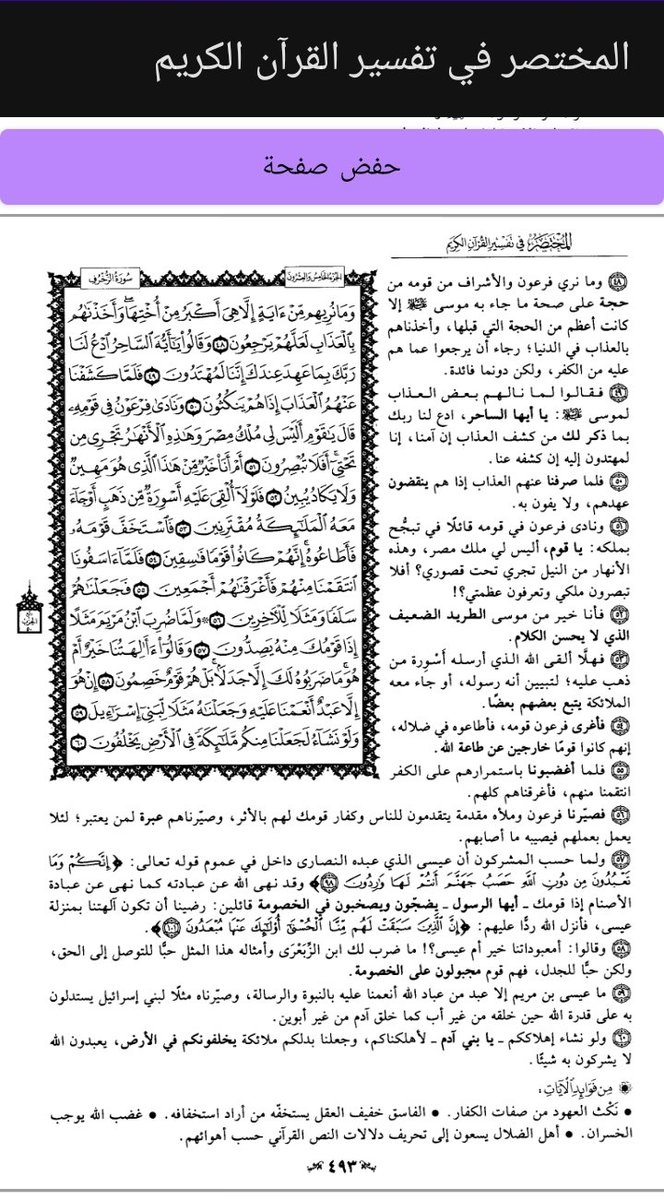 المختصر في تفسير القرآن الكريم
حفض صفحة
المختصر في تفسير القرآن الكريم
سورة الزخرف
الجزء الخامس والعشرون
وَمَا نُرِيهِم مِّنْ ءَايَةٍ إِلَّا هِىَ أَكْبَرُ مِنْ أُخْتِهَا ۖ وَأَخَذْنَٰهُم
بِٱلْعَذَابِ لَعَلَّهُمْ يَرْجِعُونَ ٤٨ وَقَالُوا۟ يَٰٓأَيُّهَ ٱلسَّاحِرُ ٱدْعُ لَنَا
رَبَّكَ بِمَا عَهِدَ عِندَكَ إِنَّنَا لَمُهْتَدُونَ ٤٩ فَلَمَّا كَشَفْنَا
عَنْهُمُ ٱلْعَذَابَ إِذَا هُمْ يَنكُثُونَ ٥٠ وَنَادَىٰ فِرْعَوْنُ فِى قَوْمِهِۦ
قَالَ يَٰقَوْمِ أَلَيْسَ لِى مُلْكُ مِصْرَ وَهَٰذِهِ ٱلْأَنْهَٰرُ تَجْرِى مِن
تَحْتِىٓ ۖ أَفَلَا تُبْصِرُونَ ٥١ أَمْ أَنَا۠ خَيْرٌ مِّنْ هَٰذَا ٱلَّذِى هُوَ مَهِينٌ
وَلَا يَكَادُ يُبِينُ ٥٢ فَلَوْلَآ أُلْقِىَ عَلَيْهِ أَسْوِرَةٌ مِّن ذَهَبٍ أَوْ جَآءَ
مَعَهُ ٱلْمَلَٰٓئِكَةُ مُقْتَرِنِينَ ٥٣ فَٱسْتَخَفَّ قَوْمَهُۥ
فَأَطَاعُوهُ ۚ إِنَّهُمْ كَانُوا۟ قَوْمًا فَٰسِقِينَ ٥٤ فَلَمَّآ ءَاسَفُونَا
ٱنتَقَمْنَا مِنْهُمْ فَأَغْرَقْنَٰهُمْ أَجْمَعِينَ ٥٥ فَجَعَلْنَٰهُمْ
سَلَفًا وَمَثَلًا لِّلْءَاخِرِينَ ٥٦ ۞ وَلَمَّا ضُرِبَ ٱبْنُ مَرْيَمَ مَثَلًا
إِذَا قَوْمُكَ مِنْهُ يَصِدُّونَ ٥٧ وَقَالُوٓا۟ ءَأَٰلِهَتُنَا خَيْرٌ أَمْ
هُوَ ۚ مَا ضَرَبُوهُ لَكَ إِلَّا جَدَلًۢا ۚ بَلْ هُمْ قَوْمٌ خَصِمُونَ ٥٨ إِنْ هُوَ
إِلَّا عَبْدٌ أَنْعَمْنَا عَلَيْهِ وَجَعَلْنَٰهُ مَثَلًا لِّبَنِىٓ إِسْرَٰٓءِيلَ ٥٩
وَلَوْ نَشَآءُ لَجَعَلْنَا مِنكُم مَّلَٰٓئِكَةً فِى ٱلْأَرْضِ يَخْلُفُونَ ٦٠
٤٨ وما نري فرعون والأشراف من قومه من
حجة على صحة ما جاء به موسى ﷺ إلا
كانت أعظم من الحجة التي قبلها، وأخذناهم
بالعذاب في الدنيا؛ رجاء أن يرجعوا عما هم
عليه من الكفر، ولكن دونما فائدة.
٤٩ فقالوا لما نالهم بعض العذاب
لموسى ﷺ: يا أيها الساحر، ادع لنا ربك
بما ذكر لك من كشف العذاب إن آمنا، إنا
لمهتدون إليه إن كشفه عنا.
٥٠ فلما صرفنا عنهم العذاب إذا هم ينقضون
عهدهم، ولا يفون به.
٥١ ونادى فرعون في قومه قائلًا في تبجُّح
بملكه: يا قوم، أليس لي ملك مصر، وهذه
الأنهار من النيل تجري تحت قصوري؟ أفلا
تبصرون ملكي وتعرفون عظمتي؟!
٥٢ فأنا خير من موسى الطريد الضعيف
الذي لا يحسن الكلام.
٥٣ فهلَّا ألقى الله الذي أرسله أسْوِرة من
ذهب عليه؛ لتبيين أنه رسوله، أو جاء معه
الملائكة يتبع بعضهم بعضًا.
٥٤ فأغرى فرعون قومه، فأطاعوه في ضلاله،
إنهم كانوا قومًا خارجين عن طاعة الله.
٥٥ فلما أغضبونا باستمرارهم على الكفر
انتقمنا منهم، فأغرقناهم كلهم.
٥٦ فصيّرنا فرعون وملأه مقدمة يتقدمون للناس وكفار قومك لهم بالأثر، وصيّرناهم عبرة لمن يعتبر؛ لئلا
يعمل بعملهم فيصيبه ما أصابهم.
٥٧ ولما حسب المشركون أن عيسى الذي عبده النصارى داخل في عموم قوله تعالى: ﴿إِنَّكُمْ وَمَا
تَعْبُدُونَ مِن دُونِ ٱللَّهِ حَصَبُ جَهَنَّمَ أَنتُمْ لَهَا وَٰرِدُونَ ٩٨﴾ وقد نهى الله عن عبادته كما نهى عن عبادة
الأصنام إذا قومك ـ أيها الرسول ـ يضجّون ويصخبون في الخصومة قائلين: رضينا أن تكون آلهتنا بمنزلة
عيسى، فأنزل الله ردًّا عليهم: ﴿إِنَّ ٱلَّذِينَ سَبَقَتْ لَهُم مِّنَّا ٱلْحُسْنَىٰٓ أُو۟لَٰٓئِكَ عَنْهَا مُبْعَدُونَ ١٠١﴾.
٥٨ وقالوا: أمعبوداتنا خير أم عيسى؟! ما ضرب لك ابن الزِّبَعْرَى وأمثاله هذا المثل حبًّا للتوصل إلى الحق،
ولكن حبًّا للجدل، فهم قوم مجبولون على الخصومة.
٥٩ ما عيسى بن مريم إلا عبد من عباد الله أنعمنا عليه بالنبوة والرسالة، وصيّرناه مثلًا لبني إسرائيل يستدلون
به على قدرة الله حين خلقه من غير أب كما خلق آدم من غير أبوين.
٦٠ ولو نشاء إهلاككم ـ يا بني آدم ـ لأهلكناكم، وجعلنا بدلكم ملائكة يخلفونكم في الأرض، يعبدون الله
لا يشركون به شيئًا.
من فوائد الآيات:
• نَكْث العهود من صفات الكفار. • الفاسق خفيف العقل يستخفّه من أراد استخفافه. • غضب الله يوجب
الخسران. • أهل الضلال يسعون إلى تحريف دلالات النص القرآني حسب أهوائهم.
٤٩٣